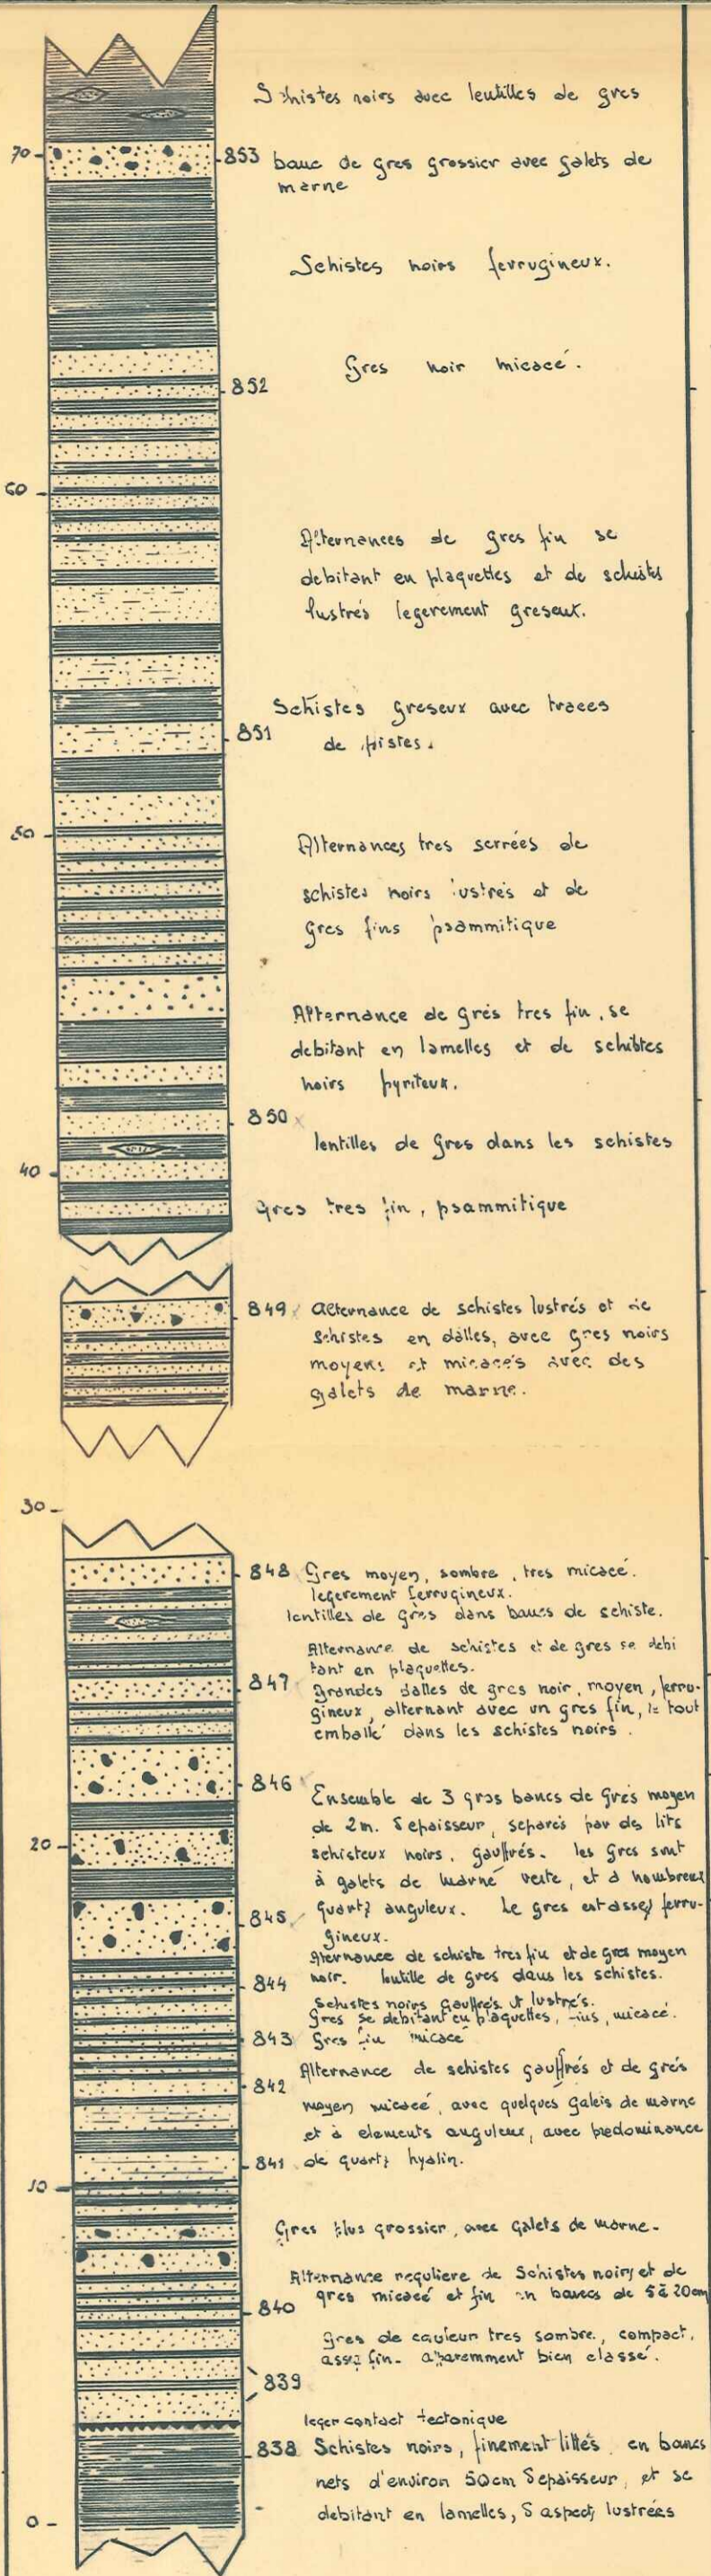 Schistes noirs avec lentilles de gres
70
853 banc de gres grossier avec galets de
marne
Schistes noirs ferrugineux.
Gres noir micacé.
852
60
Alternances de gres fin se
debitant en plaquettes et de schistes
lustrés legerement greseux.
Schistes greseux avec traces
851
de pistes.
50
Alternances tres serrées de
schistes noirs lustrés et de
gres fins psammitique
Alternance de grés tres fin, se
debitant en lamelles et de schistes
noirs pyriteux.
850
lentilles de gres dans les schistes
40
Gres tres fin, psammitique
849 Alternance de schistes lustrés et de
schistes en dalles, avec gres noirs
moyens et micacés avec des
galets de marne.
30
848 Gres moyen, sombre, tres micacé.
legerement ferrugineux.
lentilles de gres dans bancs de schiste.
Alternance de schistes et de gres se debi
tant en plaquettes.
847 grandes dalles de gres noir, moyen, ferru-
gineux, alternant avec un gres fin, le tout
emballé dans les schistes noirs.
846 Ensemble de 3 gros bancs de Grés moyen
de 2m. d'epaisseur, separés par des lits
20
schisteux noirs, gauffrés. les Gres sont
à galets de marne verte, et à nombreux
845 quartz anguleux. Le gres est assez ferru-
gineux.
Alternance de schiste tres fin et de gres moyen
844 noir. lentille de gres dans les schistes.
Schistes noirs gauffrés et lustrés.
Gres se debitant en plaquettes, fins, micacé.
843 Gres fin micacé
842 Alternance de schistes gauffrés et de grés
moyen micacé, avec quelques galets de marne
et à elements anguleux, avec predominance
841 de quartz hyalin.
10
Gres plus grossier, avec galets de marne.
Alternance reguliere de Schistes noirs et de
840 gres micacé et fin en bancs de 5 à 20cm
Gres de couleur tres sombre, compact,
assez fin. apparemment bien classé.
839
leger contact tectonique
838 Schistes noirs, finement lités, en bancs
nets d'environ 50cm d'epaisseur, et se
0
debitant en lamelles, d'aspect lustrées